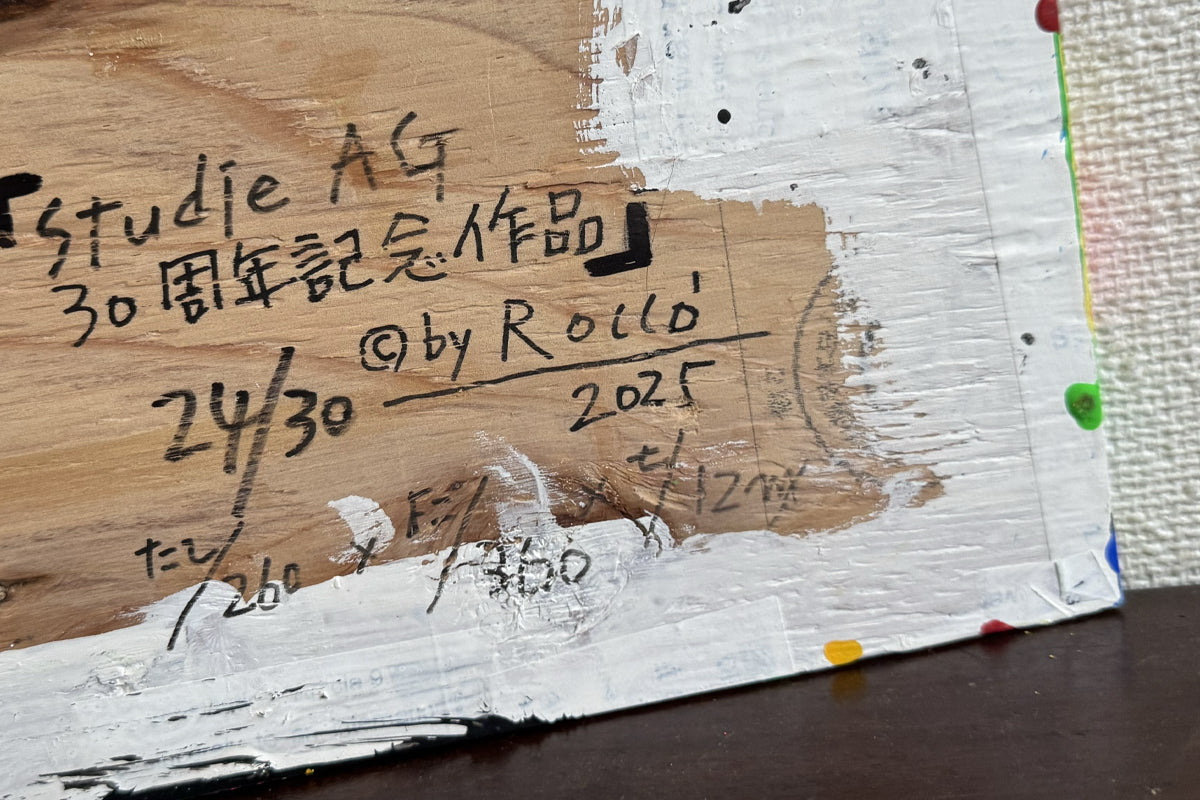 『studie AG
30周年記念作品』
©by Rollo'
2025
24/30
たて/260 × ヨコ/360 × 寸/12㎜